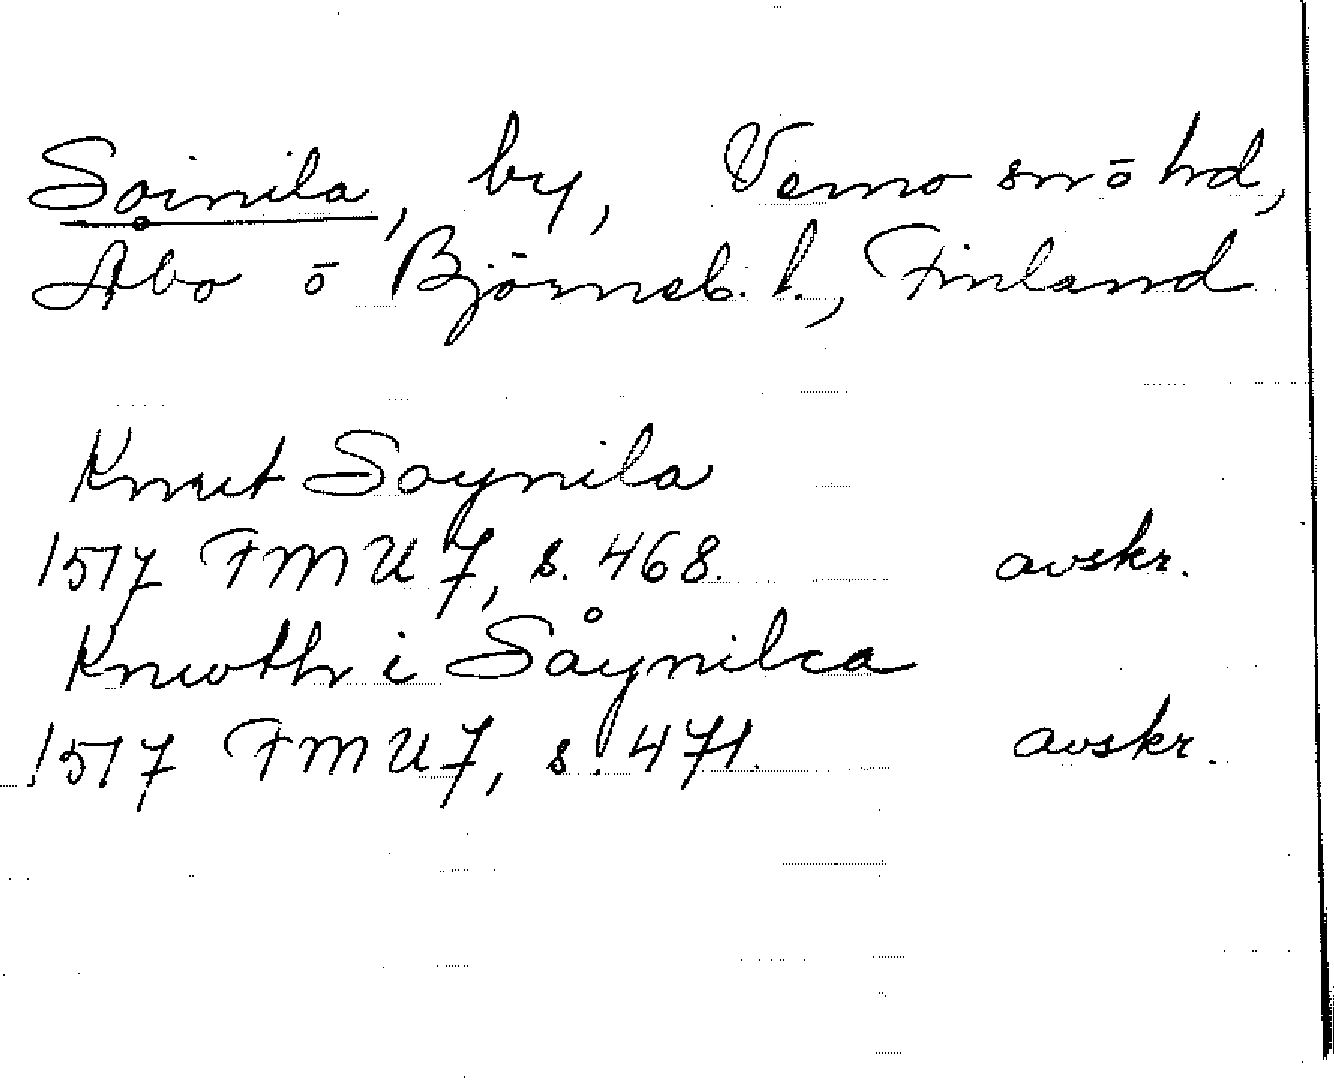 Soinila, by, Vemo sn ō hd,
Åbo ō Björneb. l., Finland
Knut Soynila
1517 FMU 7, s. 468. avskr.
Knwthr i Såynilca
1517 FMU 7, s. 471. avskr.